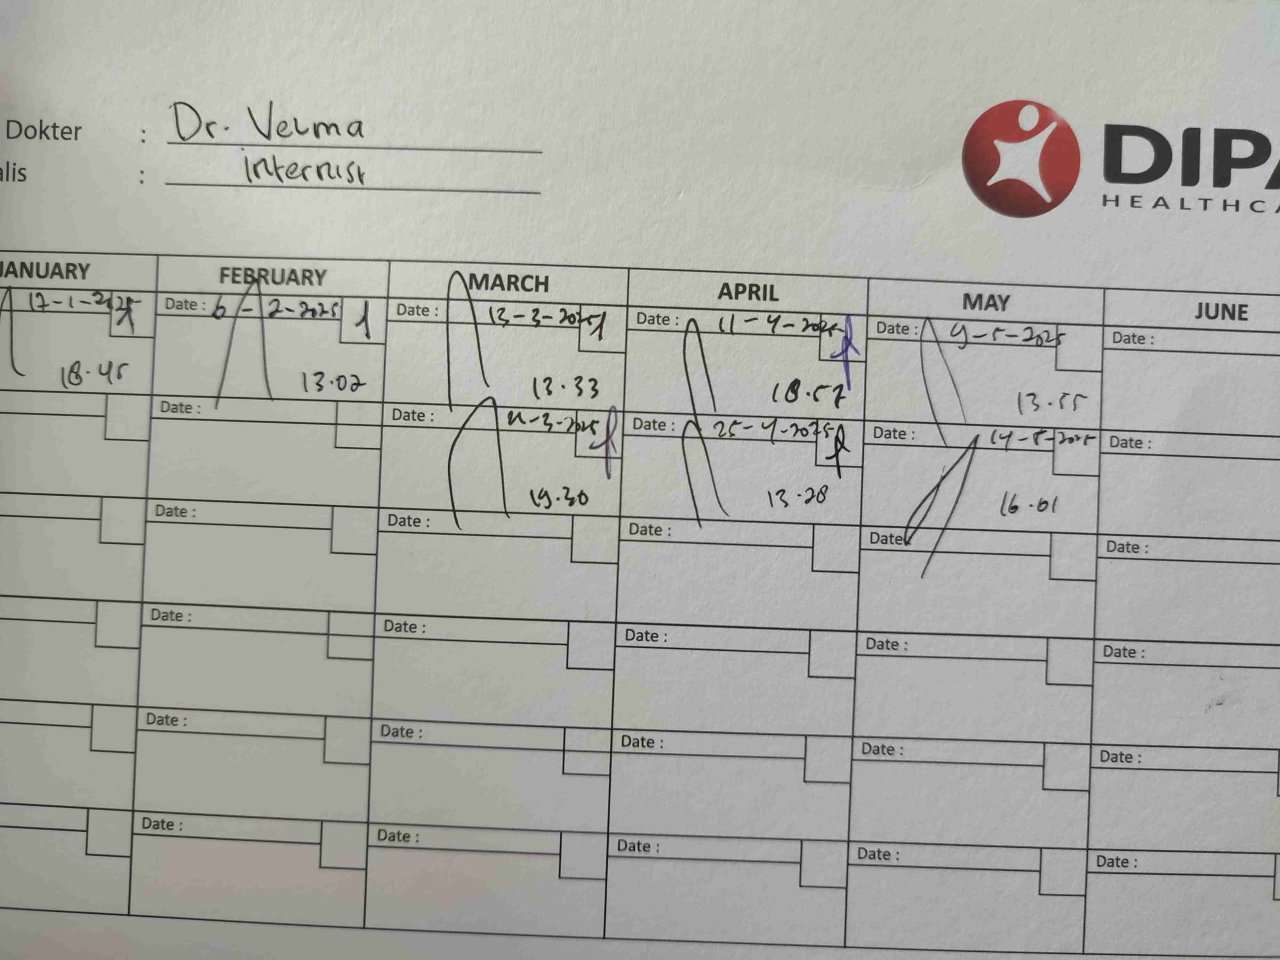 Dokter : Dr. Velma
alis : internist
DIPA
HEALTHCA
JANUARY FEBRUARY MARCH APRIL MAY JUNE
17-1-2025 Date : 6-2-2025 Date : 13-3-2025 Date : 11-4-2025 Date : 9-5-2025 Date :
18.45 13.02 13.33 18.57 13.55
Date : Date : Date : 25-4-2025 Date : 14-5-2025 Date :
19.30 13.28 16.01
Date : Date : Date : Date : Date :
Date : Date : Date : Date : Date :
Date : Date : Date : Date : Date :
Date : Date : Date : Date : Date :